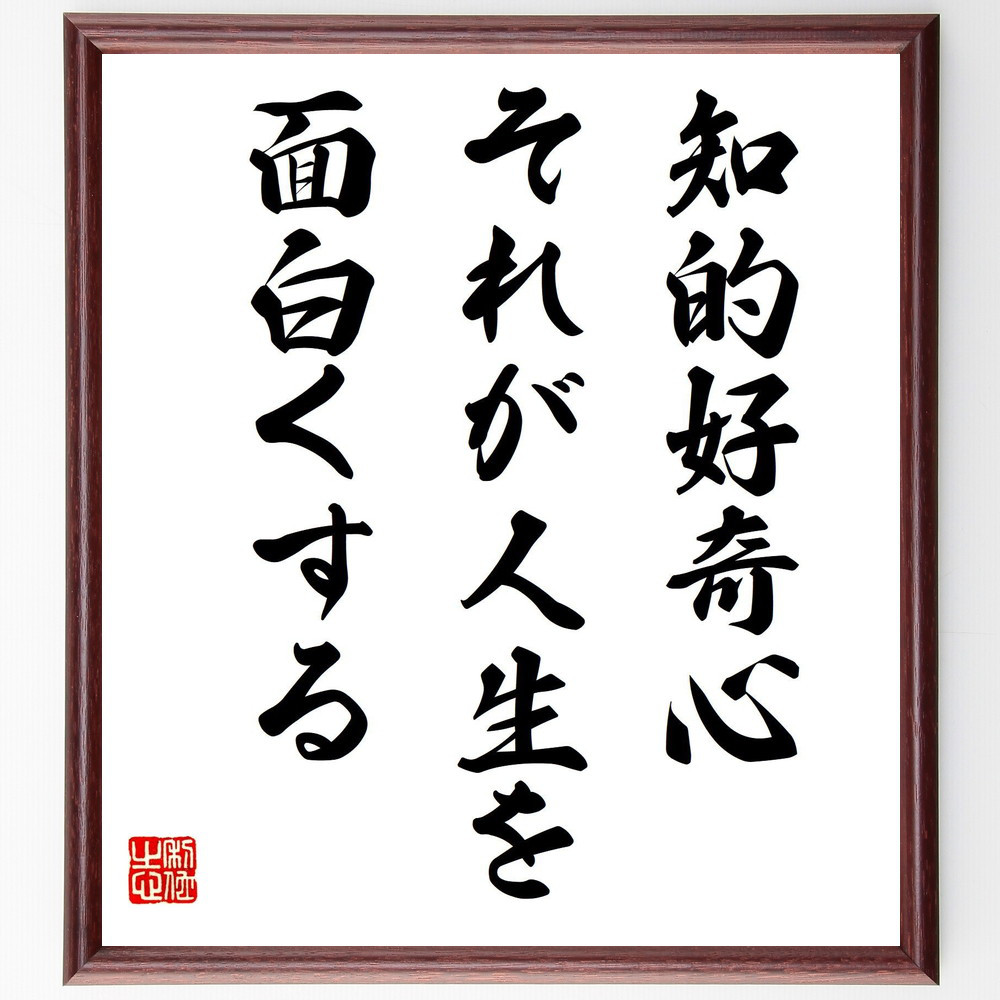 知的好奇心
それが人生を
面白くする